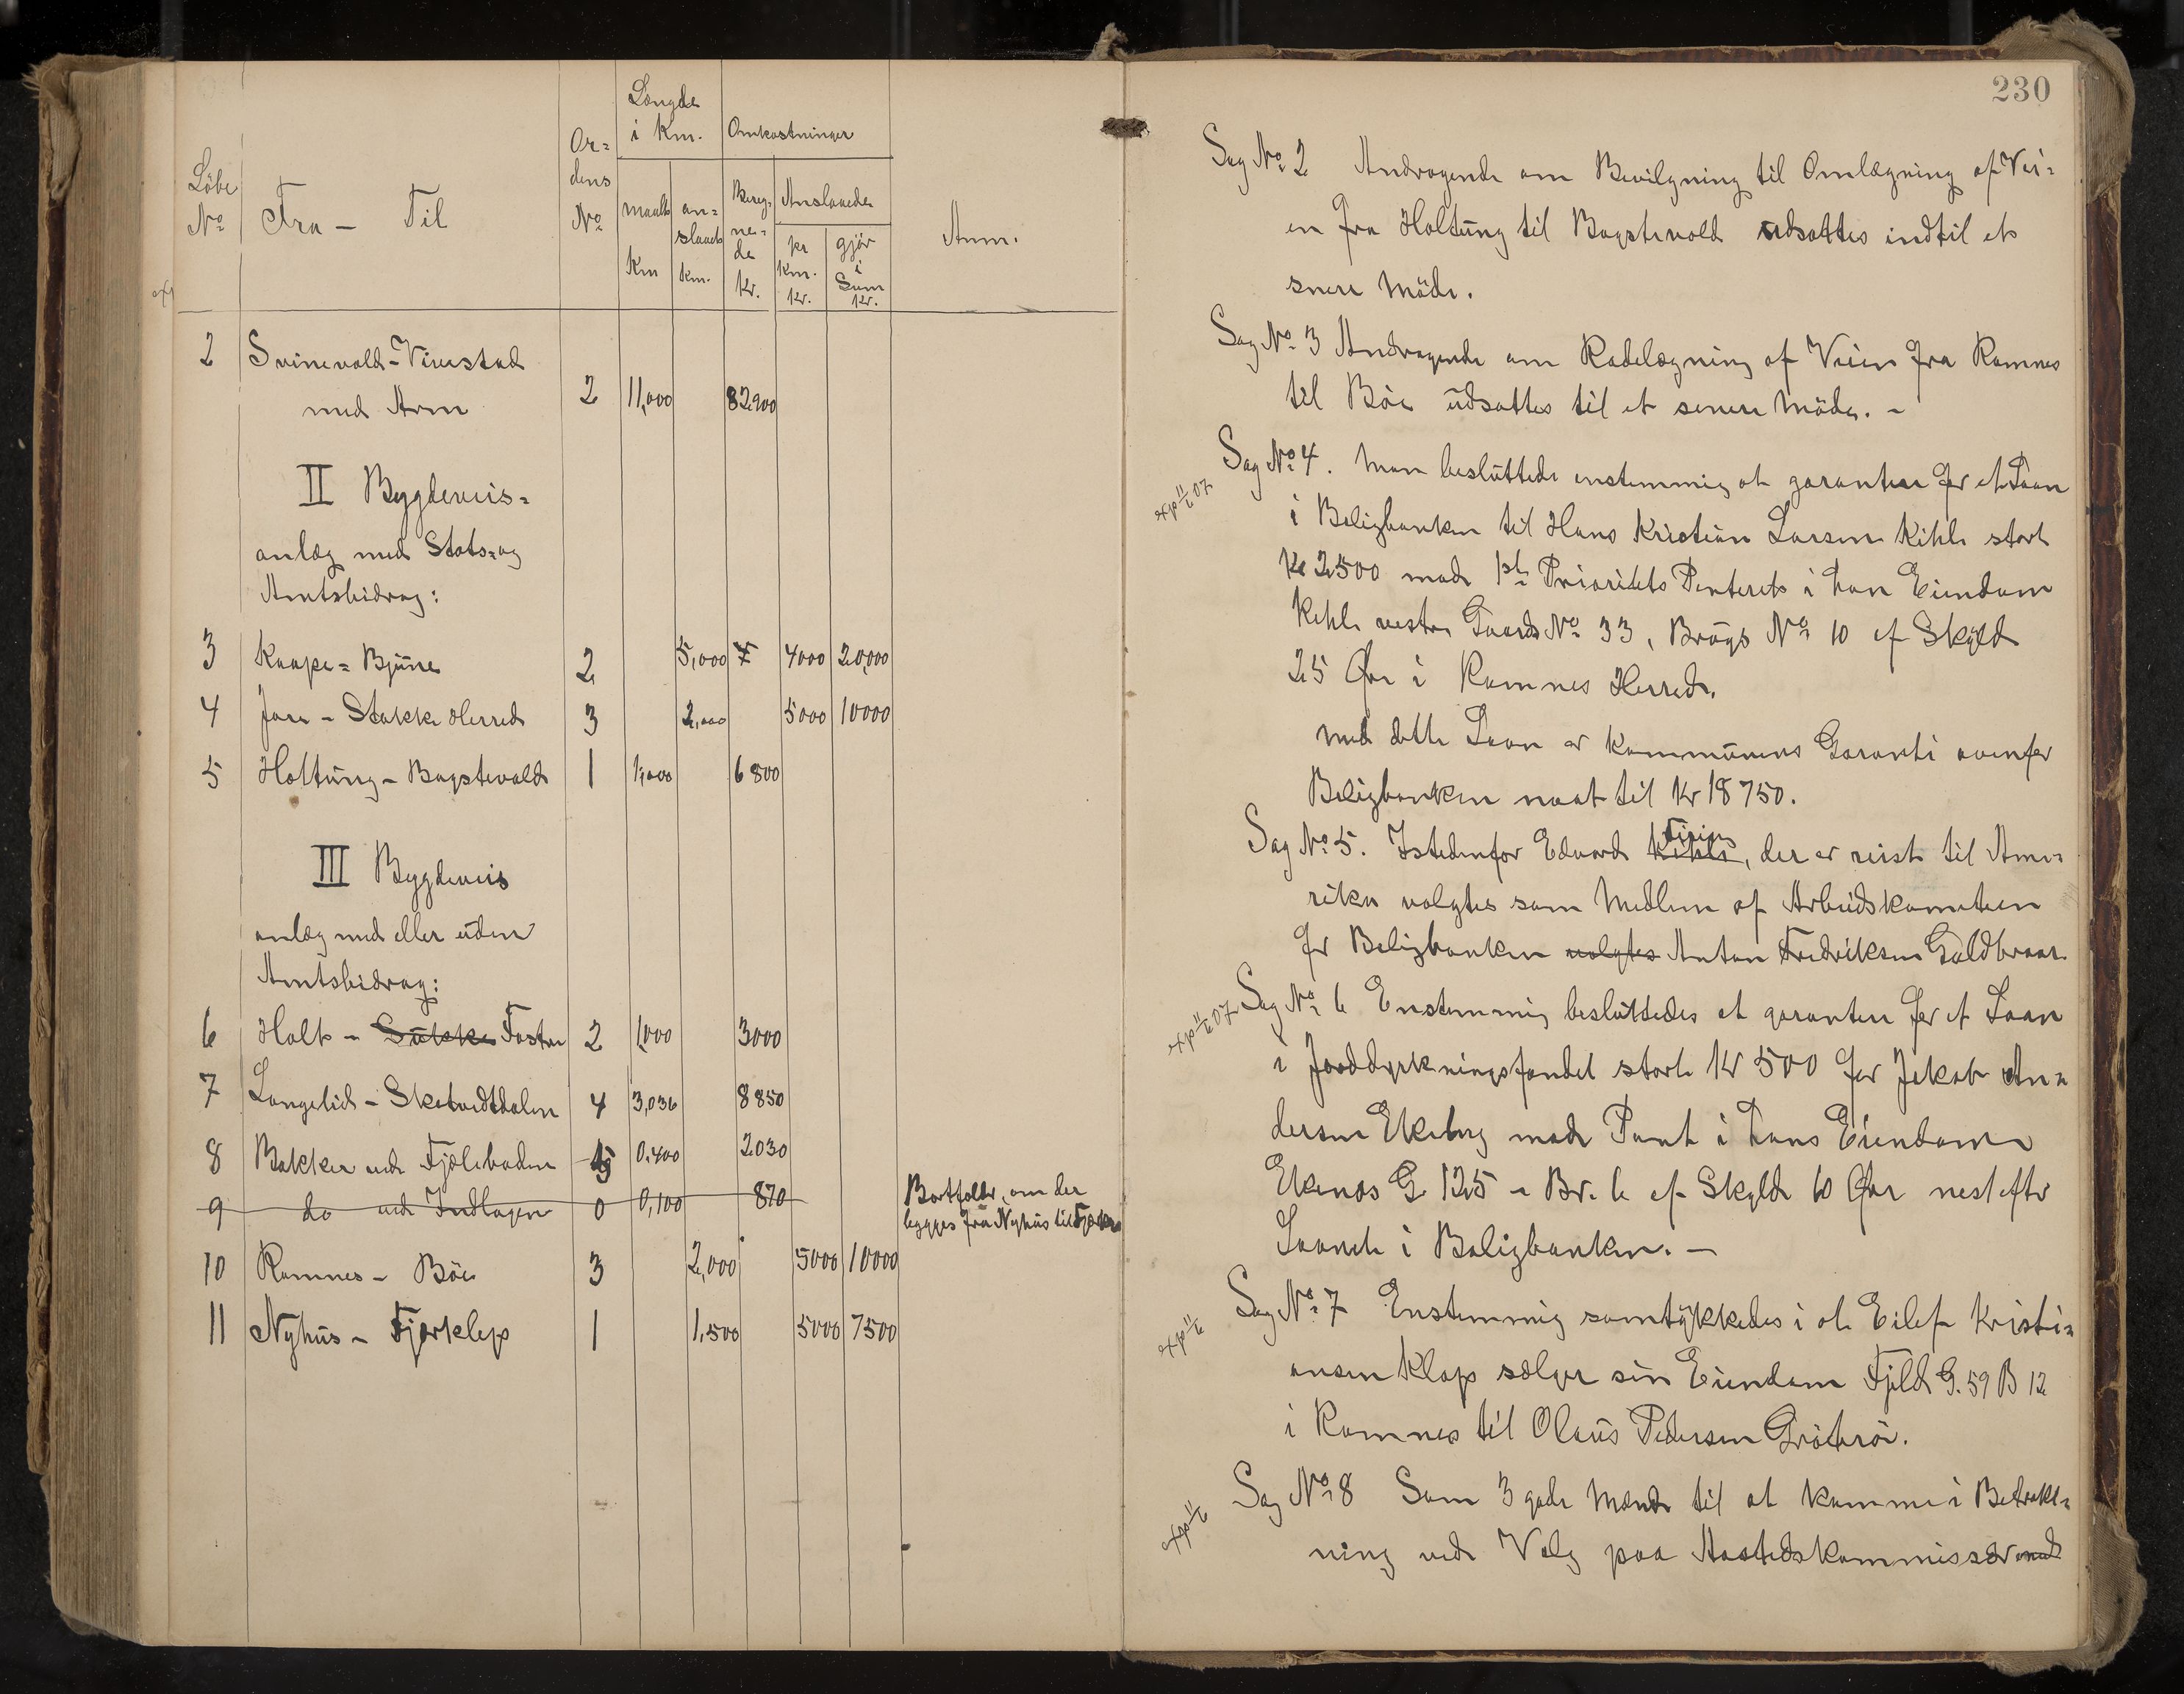 Löbe No
Fra - Til
Or=
dens
No
Længde
i Km.
maalt
Km
an=
slaaet
km.
Omkostninger
Bereg=
ne=
de
Kr.
Anslaaede
pr
km.
kr.
gjör
i
Sum
kr.
Anm.
2 Svinevold - Virustad
med Arm 2 11,000 82900
II Bygdeveis=
anlæg med Stats= og
Amtsbidrag:
3 Kaape = Bjune 2 5,000 4000 20,000
4 Jare - Stokke Herred 3 2,000 5000 10000
5 Holtung - Bogstevold 1 1,000 6800
III Bygdeveis
anlæg med eller uden
Amtsbidrag:
6 Holt - Sukke Foster 2 1,000 3000
7 Langelid - Sketvedtdalen 4 3,036 8850
8 Bakker ved Fjæleboden 0,400 2030
9 do ved Indlagen 0 0,100 870 Bortfalder, om der
bygges fra Nyhus til Fjærkl
10 Ramnes - Böe 3 2,000 5000 10000
11 Nyhus - Fjærklep 1 1,500 5000 7500
230
Sag No 2 Andragende om Bevilgning til Omlægning af Vei=
en fra Holtung til Bogstevold udsattes indtil et
snere Möde.
Sag No 3 Andragende om Rodelægning af Veien fra Ramnes
til Böe udsattes til et senere Möde. -
exp 11/6 07
Sag No 4. Man besluttede enstemmig at garantere for et Laan
i Boligbanken til Hans Kristian Larsen Kihle stort
Kr 2500 mod 1ste Prioritets Panteret i han Eiendom
Kihle vestre Gaards No 33, Brugs No 10 af Skyld
25 Öre i Ramnes Herred.
Med dette Laan er Kommunens Garanti ovenfor
Boligbanken naat til Kr 18750.
Sag No 5. Istedenfor Edvard Kihle, der er reist til Ame=
rika valgtes som Medlem af Arbeidskomiteen
for Boligbanken valgtes Anton Fredriksen Guldbraar
exp 11/6 07
Sag No 6 Enstemmig besluttedes at garantere for et Laan
i Jorddyrkningsfondet stort Kr 500 for Jakob An=
dersen Ekeberg mod Pant i hans Eiendom
Ekenes G. 125 - Br. 6 af Skyld 60 Öre nest efter
Laanet i Boligbanken. -
exp 11/6
Sag No 7 Enstemmig samtykkedes i at Eilef Kristi=
ansen Klop sælger sin Eiendom Fjeld G. 59 B 12
i Ramnes til Olaus Pedersen Gröteröi.
exp 11/6
Sag No 8 Som 3 gode Mænd til at komme i Betrakt=
ning ved Valg paa Aastedskommissær med